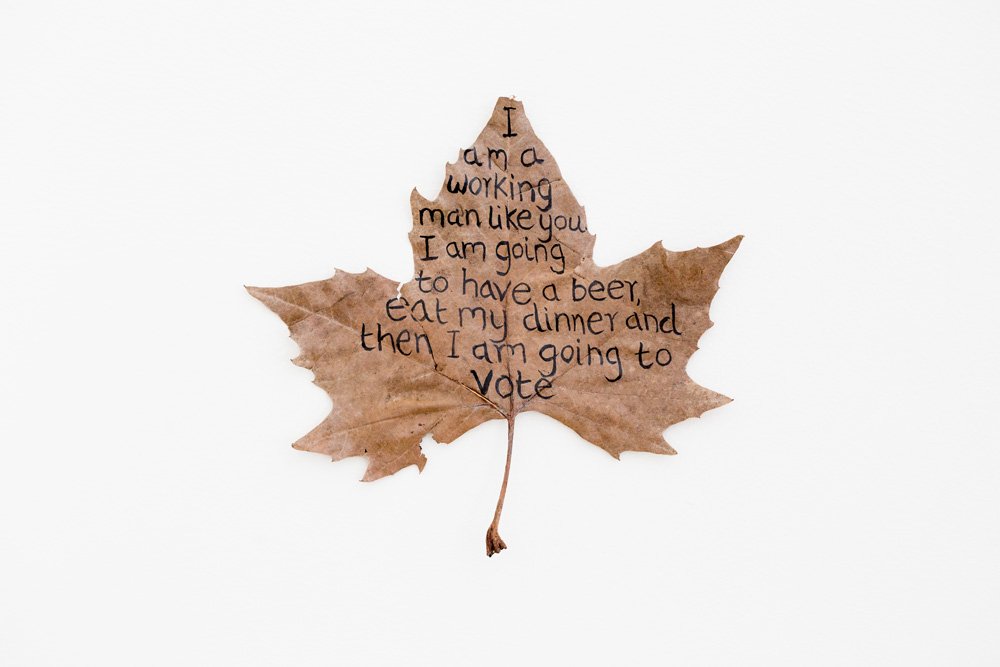 I
am a
working
man like you
I am going
to have a beer,
eat my dinner and
then I am going to
vote